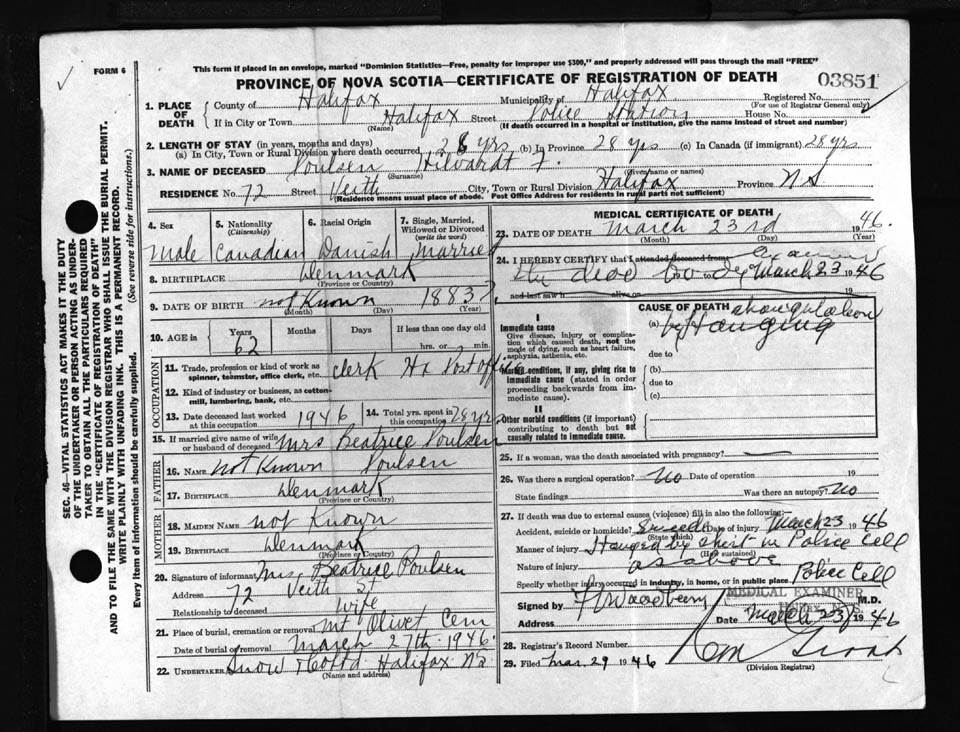 This form if placed in an envelope, marked "Dominion Statistics—Free, penalty for improper use $300," and properly addressed will pass through the mail "FREE"
FORM 6
PROVINCE OF NOVA SCOTIA—CERTIFICATE OF REGISTRATION OF DEATH
03851
1. PLACE OF DEATH
County of Halifax Municipality of Halifax Registered No.
(For use of Registrar General only)
If in City or Town Halifax Street Police Station House No.
(Name) (If death occurred in a hospital or institution, give the name instead of street and number)
2. LENGTH OF STAY (in years, months and days)
(a) In City, Town or Rural Division where death occurred 28 yrs (b) In Province 28 yrs (c) In Canada (if immigrant) 28 yrs
3. NAME OF DECEASED Poulsen Hilvardt F.
(Surname) (Given name or names)
RESIDENCE No. 72 Street Veith City, Town or Rural Division Halifax Province NS
(Residence means usual place of abode. Post Office Address for residents in rural parts not sufficient)
4. Sex
Male
5. Nationality
(Citizenship)
Canadian
6. Racial Origin
Danish
7. Single, Married, Widowed or Divorced
(write the word)
Married
8. BIRTHPLACE Denmark
(Province or Country)
9. DATE OF BIRTH not Known 1883
(Month) (Day) (Year)
10. AGE in Years Months Days If less than one day old
62 hrs. or min.
OCCUPATION
11. Trade, profession or kind of work as spinner, teamster, office clerk, etc. Clerk Hx Post office
12. Kind of industry or business, as cotton-mill, lumbering, bank, etc.
13. Date deceased last worked at this occupation 1946
14. Total yrs. spent in this occupation 28 yrs
15. If married give name of wife or husband of deceased Mrs Beatrice Poulsen
FATHER
16. NAME not Known Poulsen
17. BIRTHPLACE Denmark
(Province or Country)
MOTHER
18. MAIDEN NAME not Known
19. BIRTHPLACE Denmark
(Province or Country)
20. Signature of informant Mrs. Beatrice Poulsen
Address 72 Veith St
Relationship to deceased wife
21. Place of burial, cremation or removal Mt Olivet Cem
Date of burial or removal March 27th 1946.
22. UNDERTAKER Snow & Co Ltd Halifax NS
(Name and address)
MEDICAL CERTIFICATE OF DEATH
23. DATE OF DEATH March 23rd 1946.
(Month) (Day) (Year)
24. I HEREBY CERTIFY that I attended deceased from
the dead body March 23 1946
and last saw h alive on 19
CAUSE OF DEATH
I
Immediate cause
Give disease, injury or complication which caused death, not the mode of dying, such as heart failure, asphyxia, asthenia, etc.
(a) strangulation by Hanging
due to
Morbid conditions, if any, giving rise to immediate cause (stated in order proceeding backwards from immediate cause).
(b)
due to
(c)
II
Other morbid conditions (if important) contributing to death but not causally related to immediate cause.
25. If a woman, was the death associated with pregnancy?
26. Was there a surgical operation? No Date of operation 19
State findings Was there an autopsy? No
27. If death was due to external causes (violence) fill in also the following:—
Accident, suicide or homicide? Suicide Date of injury March 23 1946
(State which)
Manner of injury Hanged by shirt in Police Cell
(How sustained)
Nature of injury as above
Specify whether injury occurred in industry, in home, or in public place Police Cell
MEDICAL EXAMINER
Signed by M.D.
Address Date March 23 1946
28. Registrar's Record Number
29. Filed Mar. 29 1946
(Division Registrar)
SEC. 46—VITAL STATISTICS ACT MAKES IT THE DUTY OF THE UNDERTAKER OR PERSON ACTING AS UNDERTAKER TO OBTAIN ALL THE PARTICULARS REQUIRED IN THE "CERTIFICATE OF REGISTRATION OF DEATH" AND TO FILE THE SAME WITH THE DIVISION REGISTRAR WHO SHALL ISSUE THE BURIAL PERMIT.
WRITE PLAINLY WITH UNFADING INK. THIS IS A PERMANENT RECORD.
Every item of information should be carefully supplied. (See reverse side for instructions.)